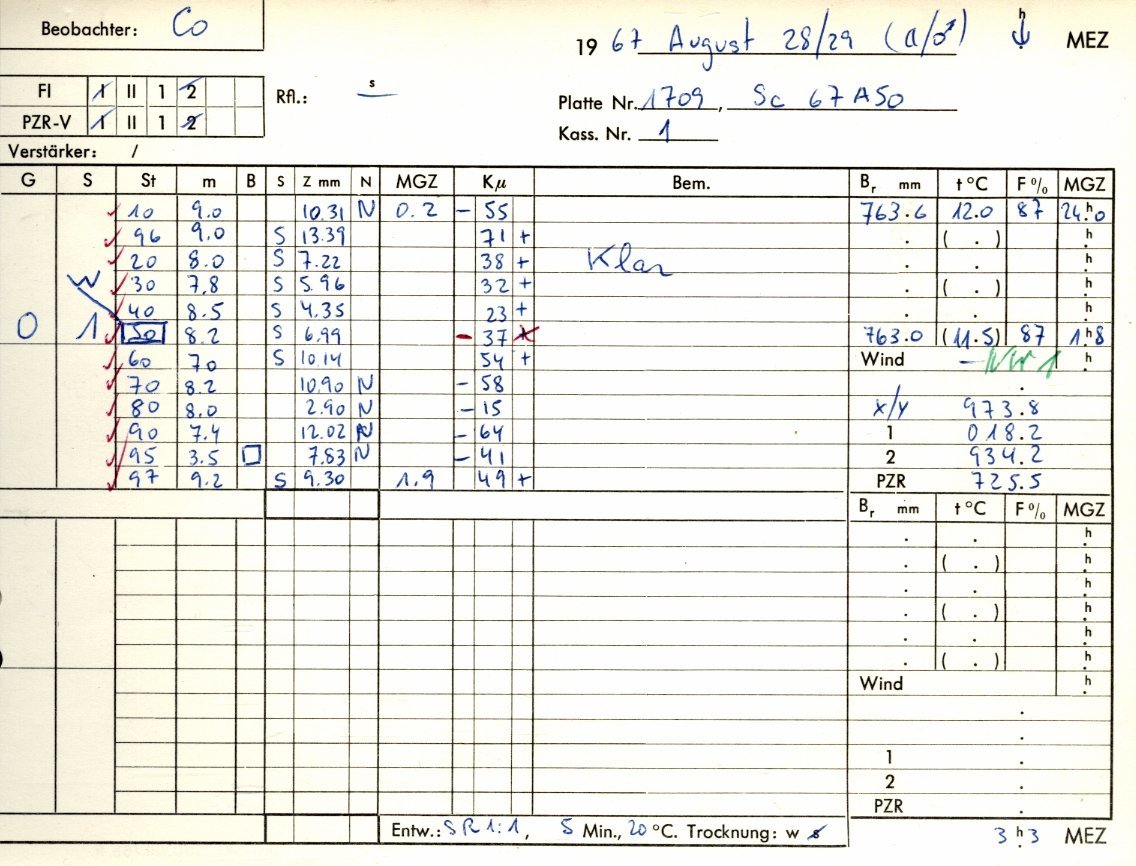 Beobachter: Co
19 67 August 28/29 (a/♂) h MEZ
FI I II 1 2 Rfl.: s
Platte Nr. 1709, Sc 67A50
PZR-V I II 1 2
Kass. Nr. 1
Verstärker: /
G S St m B S Z mm N MGZ Kµ Bem. Br mm t °C F % MGZ
10 9.0 10.31 N 0.2 - 55 763.6 12.0 87 24h.0
96 9.0 S 13.39 71 + . ( . ) h
20 8.0 S 7.22 38 + Klar . . h
W 30 7.8 S 5.96 32 + . ( . ) h
40 8.5 S 4.35 23 + . . h
0 1 50 8.2 S 6.99 - 37 763.0 (11.5) 87 1h.8
60 7.0 S 10.14 54 + Wind - NW 1 h
70 8.2 10.90 N - 58 .
80 8.0 2.90 N - 15 x/y 973.8
90 7.4 12.02 N - 64 1 018.2
95 3.5 □ 7.83 N - 41 2 934.2
97 9.2 S 9.30 1.9 49 + PZR 725.5
Br mm t °C F % MGZ
. . h
. ( . ) h
. . h
. ( . ) h
. . h
. ( . ) h
Wind h
.
.
1 .
2 .
PZR .
Entw.: SR 1:1, 5 Min., 20 °C. Trocknung: w s 3h.3 MEZ